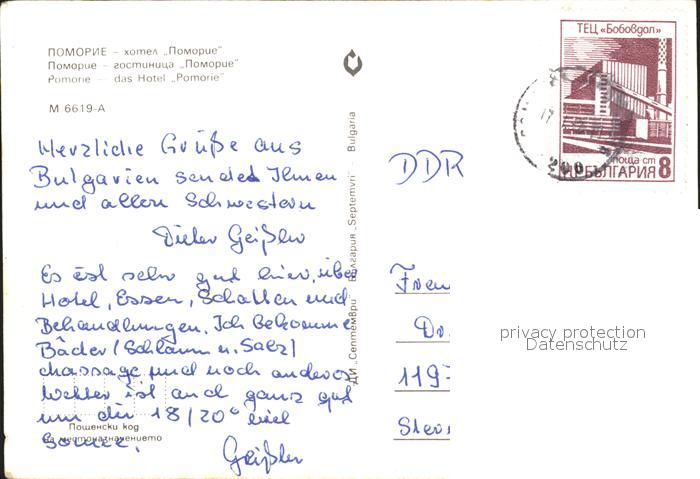 ПОМОРИЕ – хотел „Поморие"
Поморие – гостиница „Поморие"
Pomorie – das Hotel „Pomorie"
М 6619-А
Herzliche Grüße aus
Bulgarien sendet Ihnen
und allen Schwestern
Dieter Geißler
Es ist sehr gut hier, über
Hotel, Essen, Schatten und
Behandlungen. Ich bekomme
Bäder (Schlamm u. Salz)
Massage und noch anderes
Wetter ist auch ganz gut
um die 18/20° viel
Sonne.
Geißler
Пощенски код
на местоназначението
ДИ „Септември" България „Septemvri" Bulgaria
ТЕЦ «Бобовдол»
поща ст
НР БЪЛГАРИЯ 8
DDR
Frau
Dr.
119
privacy protection
Datenschutz